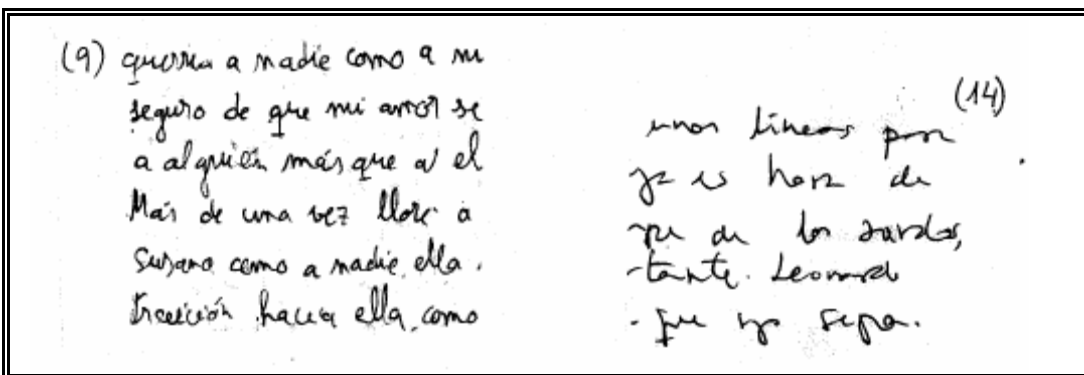 (9) querría a nadie como a mi
seguro de que mi amor se
a alguien más que a él
Más de una vez lloré a
Susana como a nadie, ella.
traición hacia ella, como
(14)
unas líneas por
ya es hora de
que de los
tante. Leonard
que yo sepa.